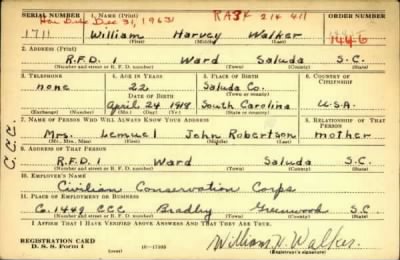 SERIAL NUMBER 1. NAME (Print) RA34 214 411 ORDER NUMBER
Hon Disc Dec 31, 1963
1711 William Harvey Walker 1446
(First) (Middle) (Last)
2. ADDRESS (Print)
R.F.D. 1 Ward Saluda S.C.
(Number and street or R. F. D. number) (Town) (County) (State)
3. TELEPHONE 4. AGE IN YEARS 5. PLACE OF BIRTH 6. COUNTRY OF CITIZENSHIP
none 22 Saluda Co.
DATE OF BIRTH (Town or county)
April 24 1918 South Carolina U.S.A.
(Exchange) (Number) (Mo.) (Day) (Yr.) (State or country)
7. NAME OF PERSON WHO WILL ALWAYS KNOW YOUR ADDRESS 8. RELATIONSHIP OF THAT PERSON
Mrs. Lemuel John Robertson mother
(Mr., Mrs., Miss) (First) (Middle) (Last)
C.C.C.
9. ADDRESS OF THAT PERSON
R.F.D. 1 Ward Saluda S.C.
(Number and street or R. F. D. number) (Town) (County) (State)
10. EMPLOYER'S NAME
Civilian Conservation Corps
11. PLACE OF EMPLOYMENT OR BUSINESS
Co. 1449 CCC Bradley Greenwood S.C.
(Number and street or R. F. D. number) (Town) (County) (State)
I AFFIRM THAT I HAVE VERIFIED ABOVE ANSWERS AND THAT THEY ARE TRUE.
REGISTRATION CARD
D. S. S. Form 1 (over) 16—17105
William H. Walker
(Registrant's signature)